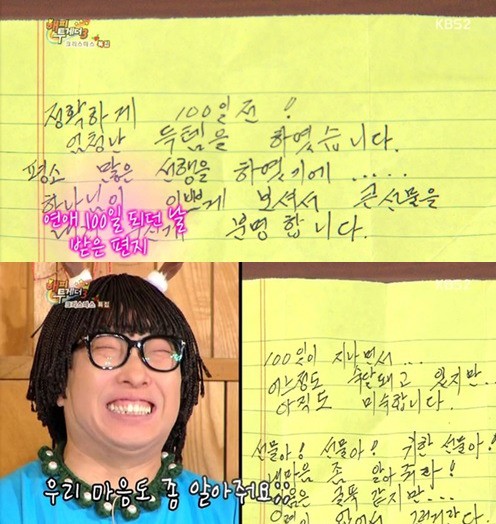 해피
투게더3
크리스마스 특집
KBS2
정확하게 100일 전!
엄청난 득템을 하였습니다.
평소 많은 선행을 하였기에......
하나님이 이쁘게 보셔서 큰 선물을
분명 합니다.
연애 100일 되던 날
받은 편지
해피
투게더3
크리스마스 특집
우리 마음도 좀 알아줘요
KBS2
100일이 지나면서...
어느정도 숙달돼고 있지만...
아직도 미숙합니다.
선물아! 선물아! 귀한 선물아!
내마음 좀 알아줘라!
굴뚝 같지만...